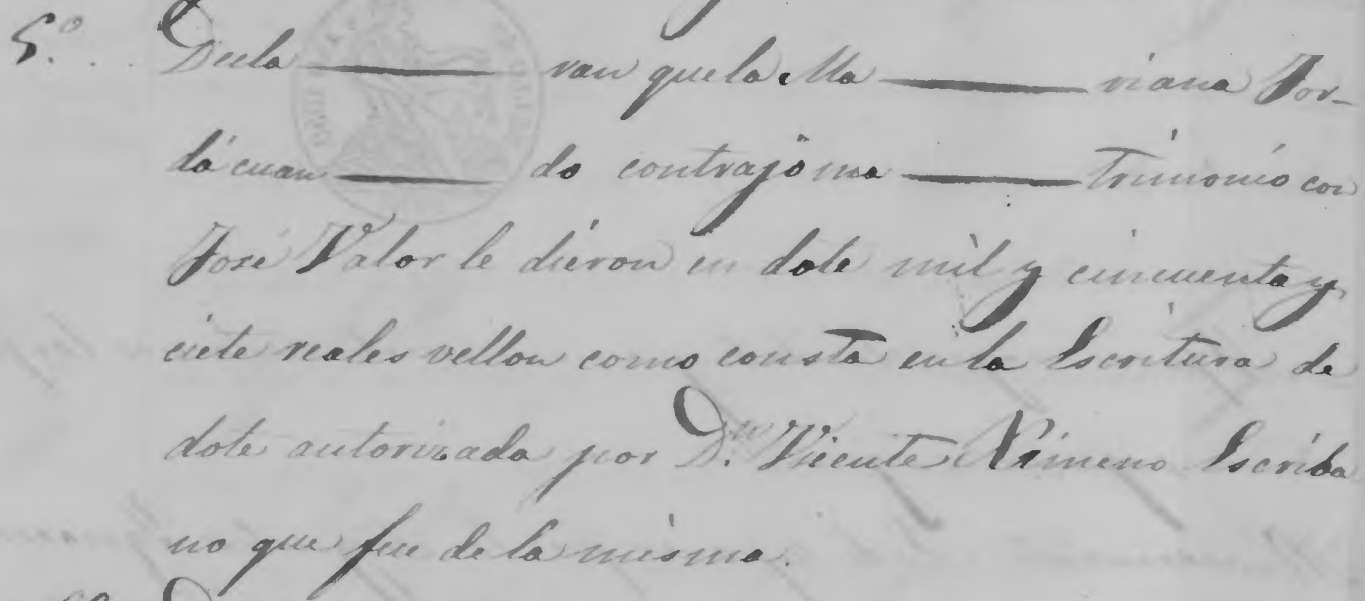 5.º Decla——ran que la Ma——riana Jor-
dá cuan——do contrajo ma——trimonio con
José Valor le dieron en dote mil y cincuenta y
ciete reales vellon como consta en la Escritura de
dote autorizada por D.n Vicente Ximeno Escriba
no que fue de la misma.